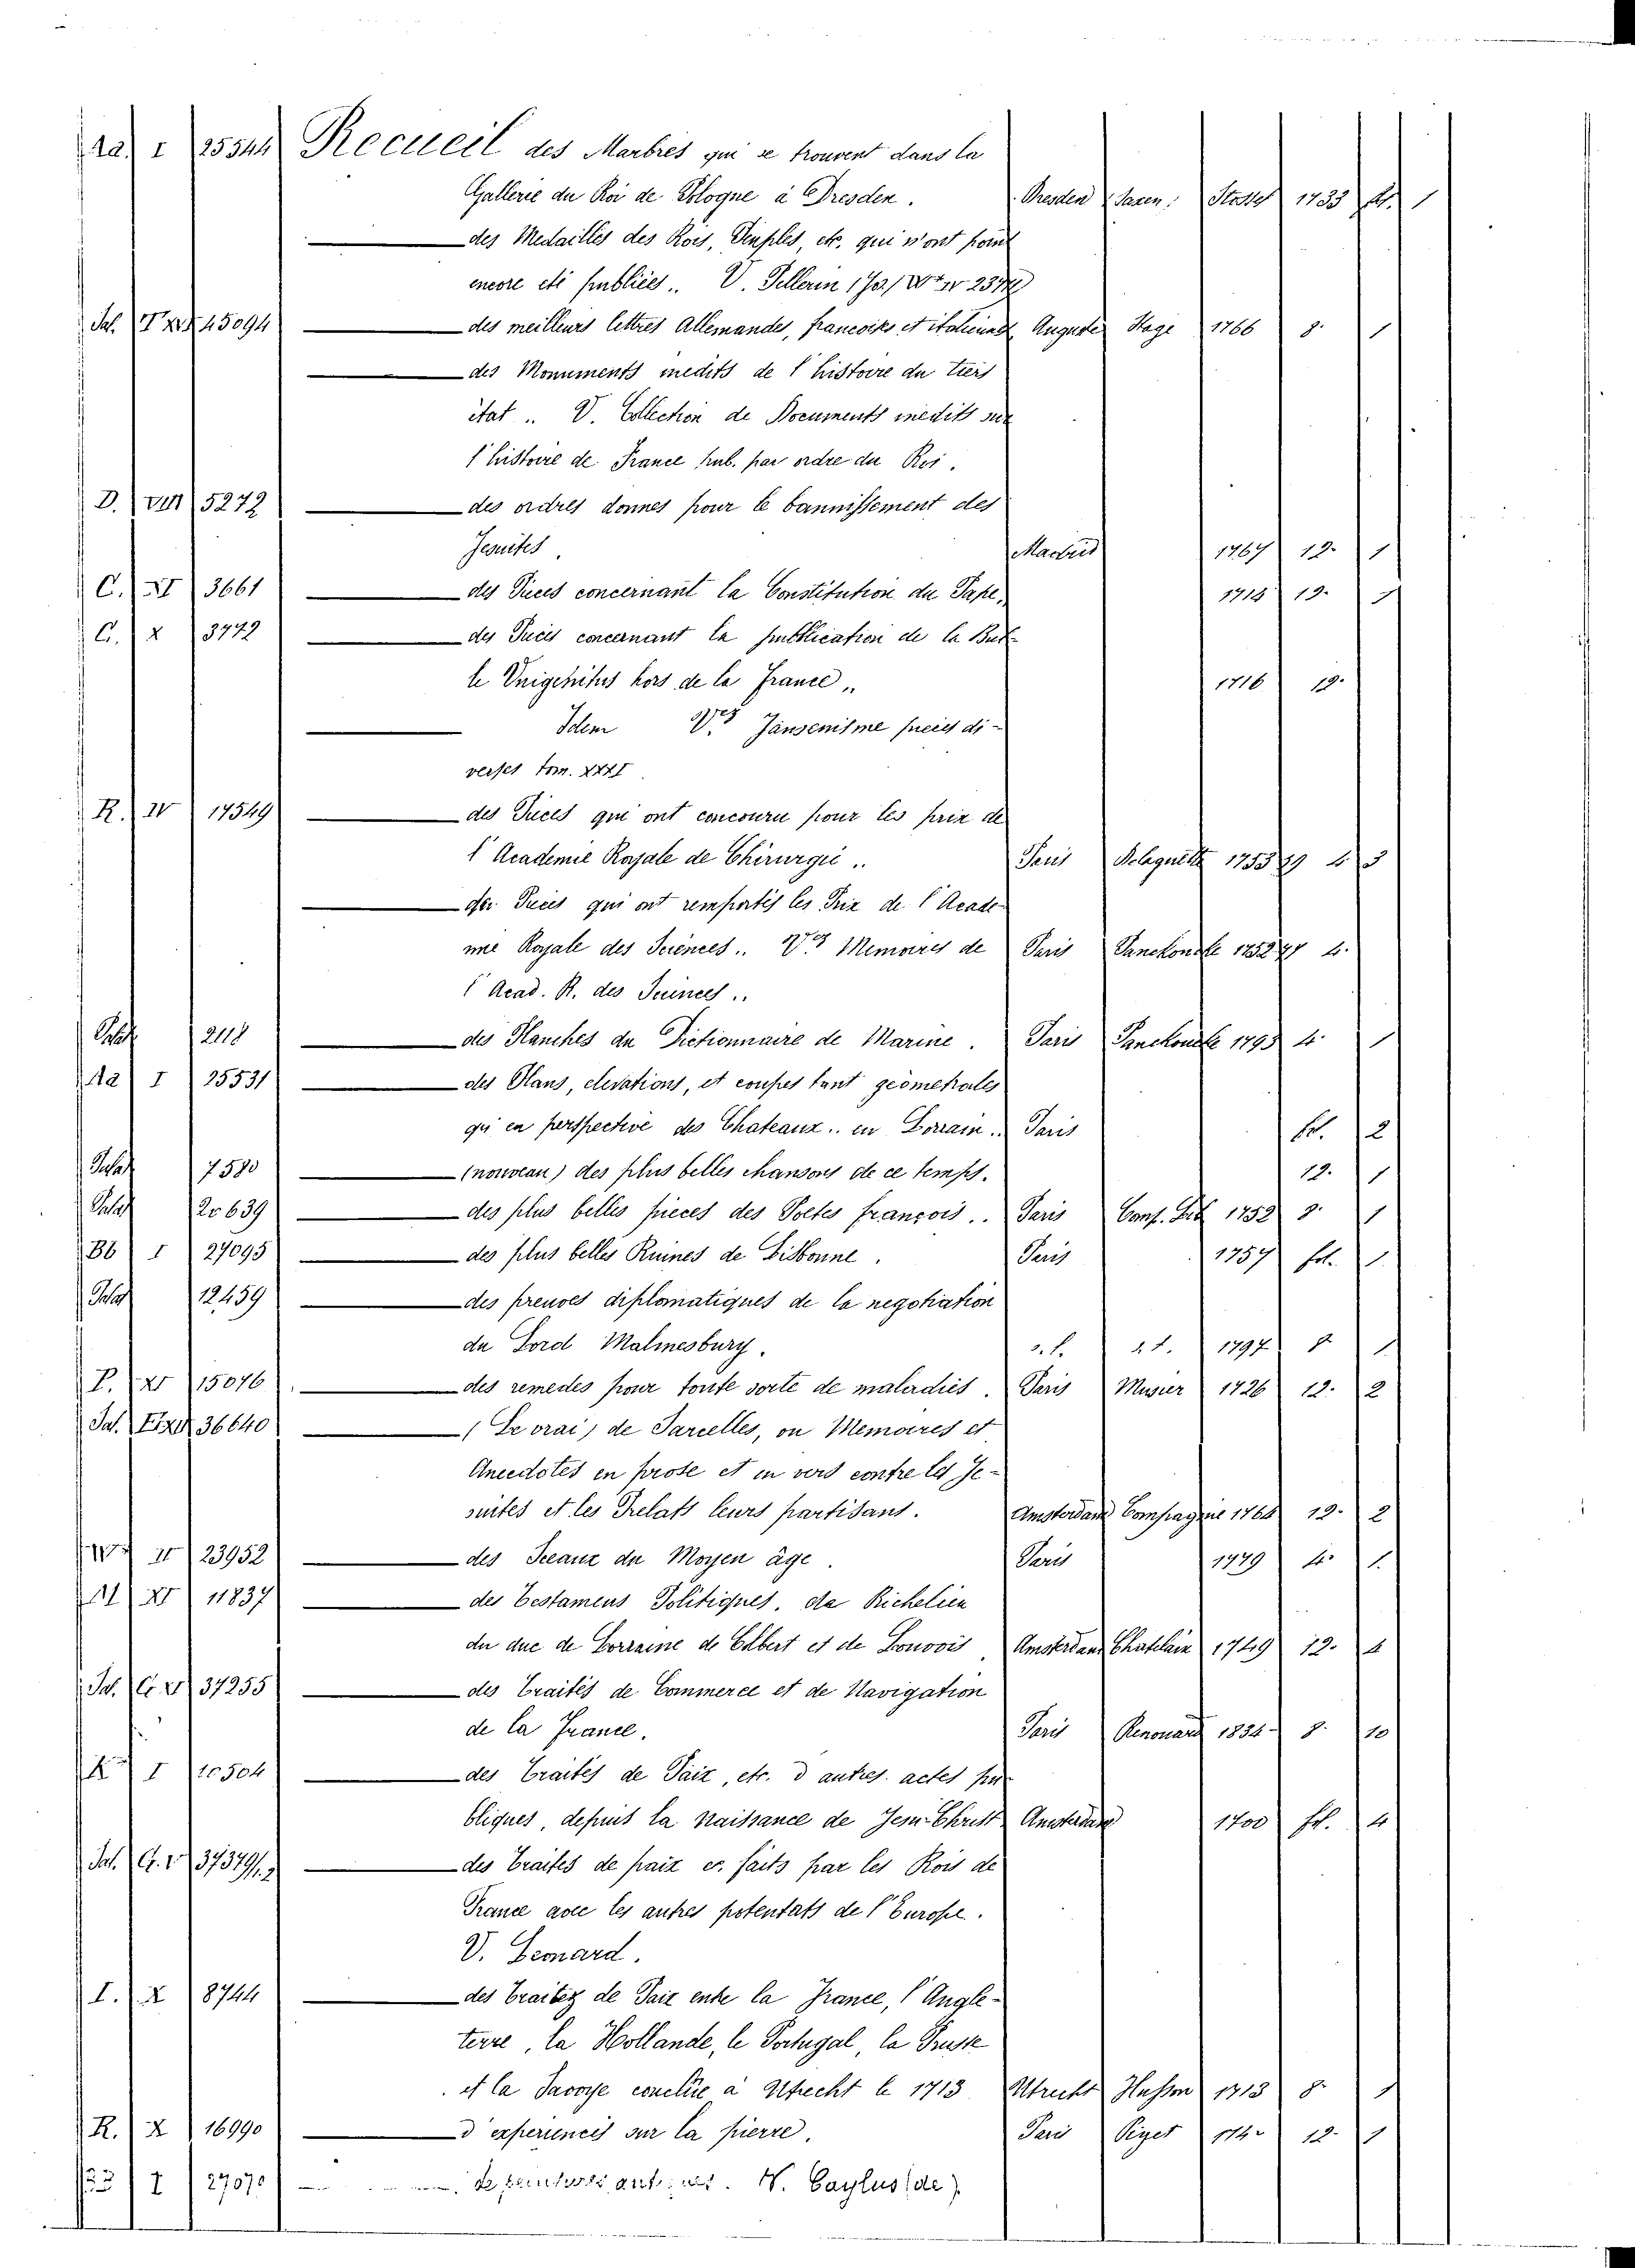 Aa I 25544 Recueil des Marbres qui se trouvent dans la
Gallerie du Roi de Pologne à Dresden. Dresden Saxen. Stossel 1733 fl. 1
des Medailles des Rois, Peuples, etc. qui n'ont point
encore eté publiées.. V. Pellerin
Jal. 45094 des meilleurs lettres Allemandes, francoises et italiennes Auguste Stage 1766 8. 1
des Monuments inedits de l'histoire du tiers
état.. V. Collection de Documents inedits sur
l'histoire de France pub. par ordre du Roi.
D. VIII 5272 des ordres donnes pour le bannissement des
Jesuites. Madrid 1767 12. 1
C. XI 3661 des Pieces concernant la Constitution du Pape, 1714 12.
C. X 3772 des Pieces concernant la publication de la Bul-
le Unigenitus hors de la France,, 1716 12.
Idem Jansenisme pieces di-
verses tom. XXII
R. IV 17549 des Pieces qui ont concouru pour les prix de
l'Academie Royale de Chirurgie.. Paris Delaguette 4. 3
des Pieces qui ont remportés les Prix de l'Acade-
mie Royale des Sciences.. Memoires de Paris Panckoucke 4.
l'Acad. R. des Sciences..
2118 des Planches du Dictionnaire de Marine. Paris Panckoucke 1793 4. 1
Aa I 25531 des Plans, elevations, et coupes tant géometrales
qu'en perspective des Chateaux.. en Lorrain.. Paris fol. 2
7580 (nouveau) des plus belles chansons de ce temps. 12. 1
20639 des plus belles pieces des Poetes françois.. Paris Comp. 1752 8. 1
Bb I 27095 des plus belles Ruines de Lisbonne. Paris 1757 fol. 1
12459 des preuves diplomatiques de la negotiation
du Lord Malmesbury. s. l. s. t. 1797 8. 1
P. XI 15076 des remedes pour toute sorte de maladies. Paris Musier 1726 12. 2
Jal. 36640 (Le vrai) de Sarcelles, ou Memoires et
Anecdotes en prose et en vers contre les Je-
suites et les Prelats leurs partisans. Amsterdam Compagnie 1764 12. 2
II 23952 des Sceaux du Moyen âge. Paris 1779 4. 1.
M XI 11837 des Testamens Politiques, de Richelieu
du duc de Lorraine de Colbert et de Louvois, Amsterdam Chatelain 1749 12. 4
Jal. G. 37255 des Traités de Commerce et de Navigation
de la France. Paris Renouard 1834 8. 10
K I 10504 des Traités de Paix, etc. d'autres actes pu-
bliques, depuis la naissance de Jesu-Christ Amsterdam 1700 fol. 4
Jal. G. 37379/1,2 des Traités de paix etc. faits par les Rois de
France avec les autres potentats de l'Europe.
V. Leonard.
I. X 8744 des Traitez de Paix entre la France, l'Angle-
terre, la Hollande, le Portugal, la Prusse
et la Savoye conclue à Utrecht le 1713 Utrecht Husson 1713 8. 1
R. X 16990 d'experiences sur la pierre. Paris Piget 12. 1
I 27070 de peintures antiques. V. Caylus (de)